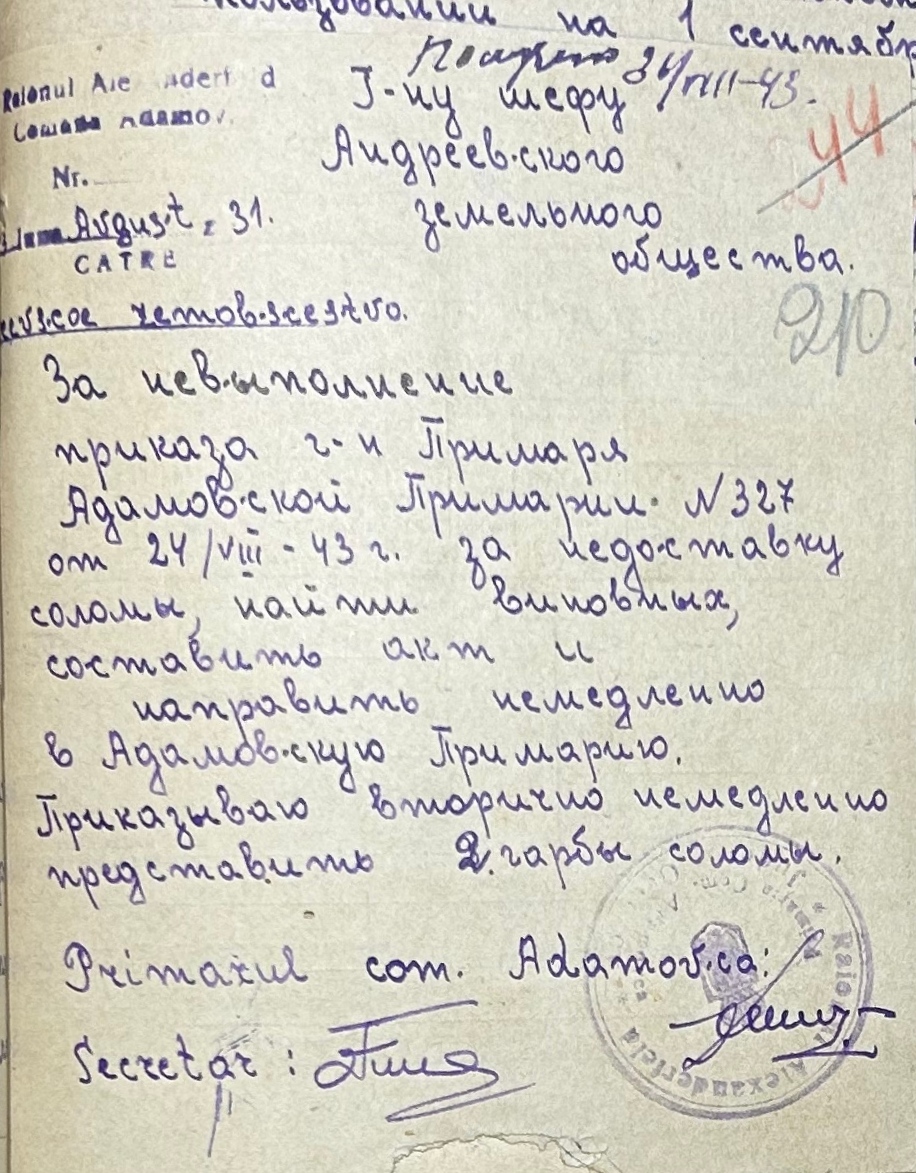 на 1 сентябр
31/VIII-43.
Raionul Alexanderfeld
Г-ну шефу
Comuna Adamov
44
Андреевского
Nr.
земельного
August, 31.
общества.
CATRE
210
За невыполнение
приказа г-н Примаря
Адамовской Примарии N 327
от 24/VIII-43 г. за недоставку
соломы, найти виновных,
составить акт и
направить немедленно
в Адамовскую Примарию.
Приказываю вторично немедленно
представить 2 гарбы соломы.
Primarul com. Adamovca:
Secretar:
Alexanderfeld